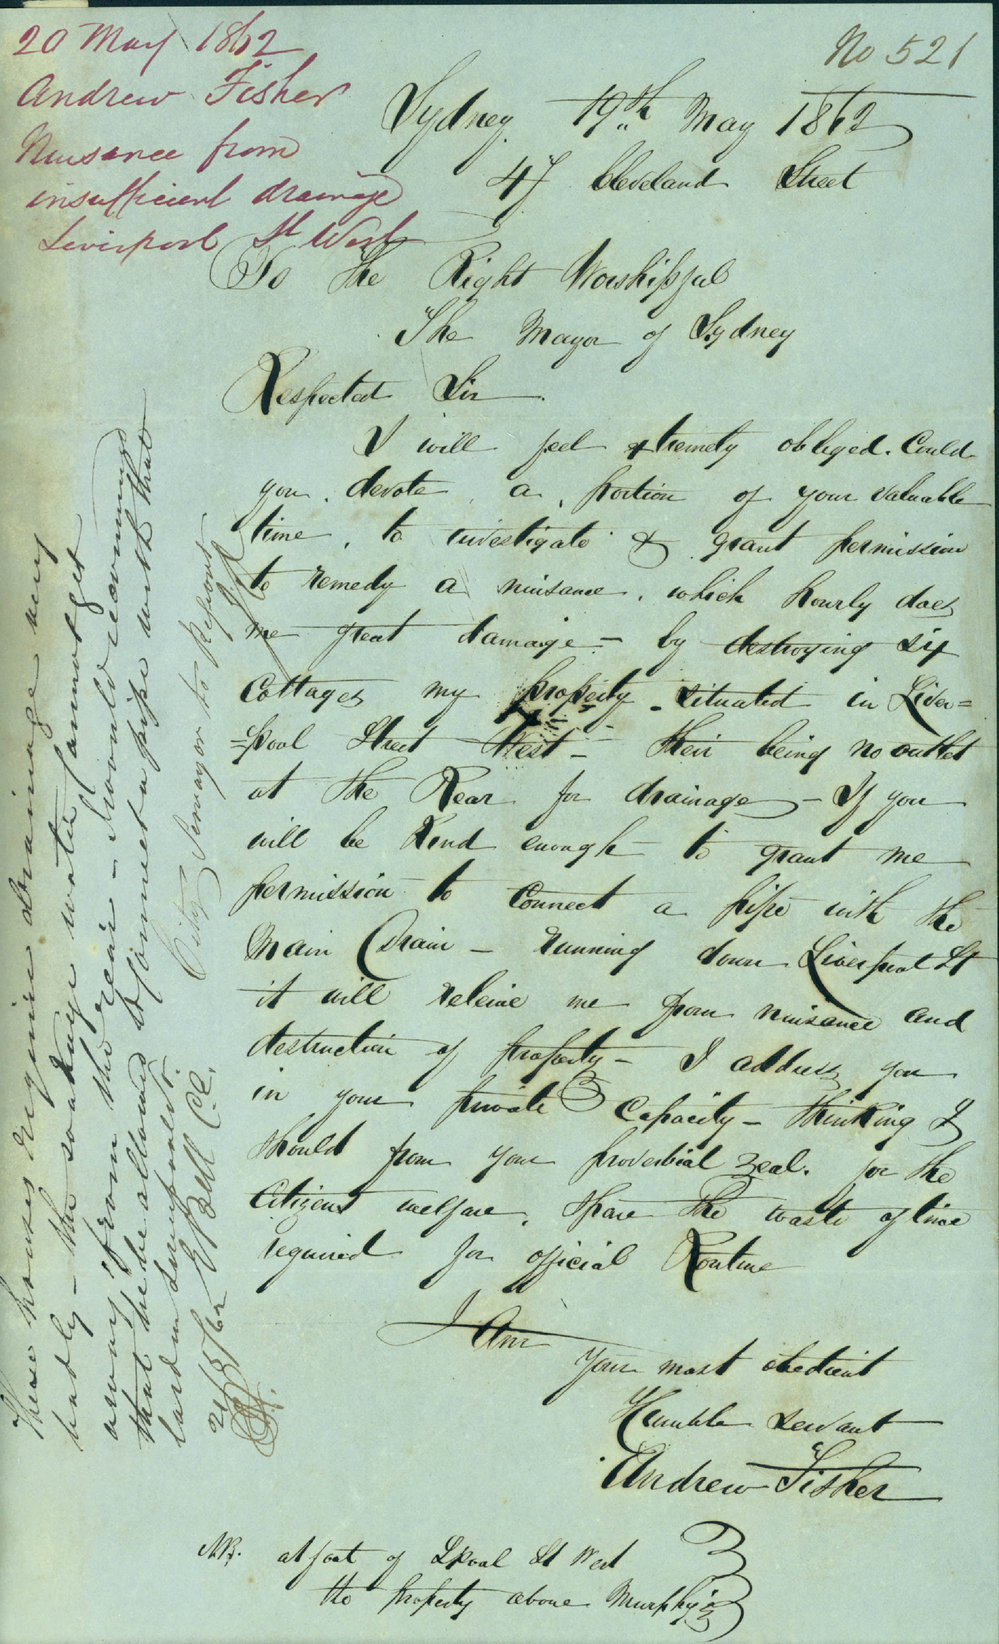 No 521
20 May 1862
Andrew Fisher
Nuisance from
insufficient drainage
Liverpool St West
Sydney 19th May 1862
47 Cleveland Street
To The Right Worshipful
The Mayor of Sydney
Respected Sir
I will feel extremely obliged. Could
you devote a portion of your valuable
time, to investigate & grant permission
to remedy a nuisance, which hourly does
me great damage – by destroying six
Cottages my property – situated in Liver=
=pool Street West – their being no outlet
at the Rear for drainage – If you
will be Kind enough to grant me
permission to Connect a pipe with the
Main Drain – running down Liverpool St
it will releive me from nuisance and
destruction of property – I address you
in your private Capacity – thinking I
should from your proverbial zeal. for the
Citizens welfare, spare the waste of time
required for official Routine
I Am
Your most obedient
Humble servant
Andrew Fisher
NB. at foot of Lpool St West
the property above Murphy's
These houses require drainage very
badly – the soakage water cannot get
away from the rear – I would recommend
that he be allowed to connect a pipe with that
laid in Liverpool St.
21/5/62 E Bell C.E.
City Surveyor to Report